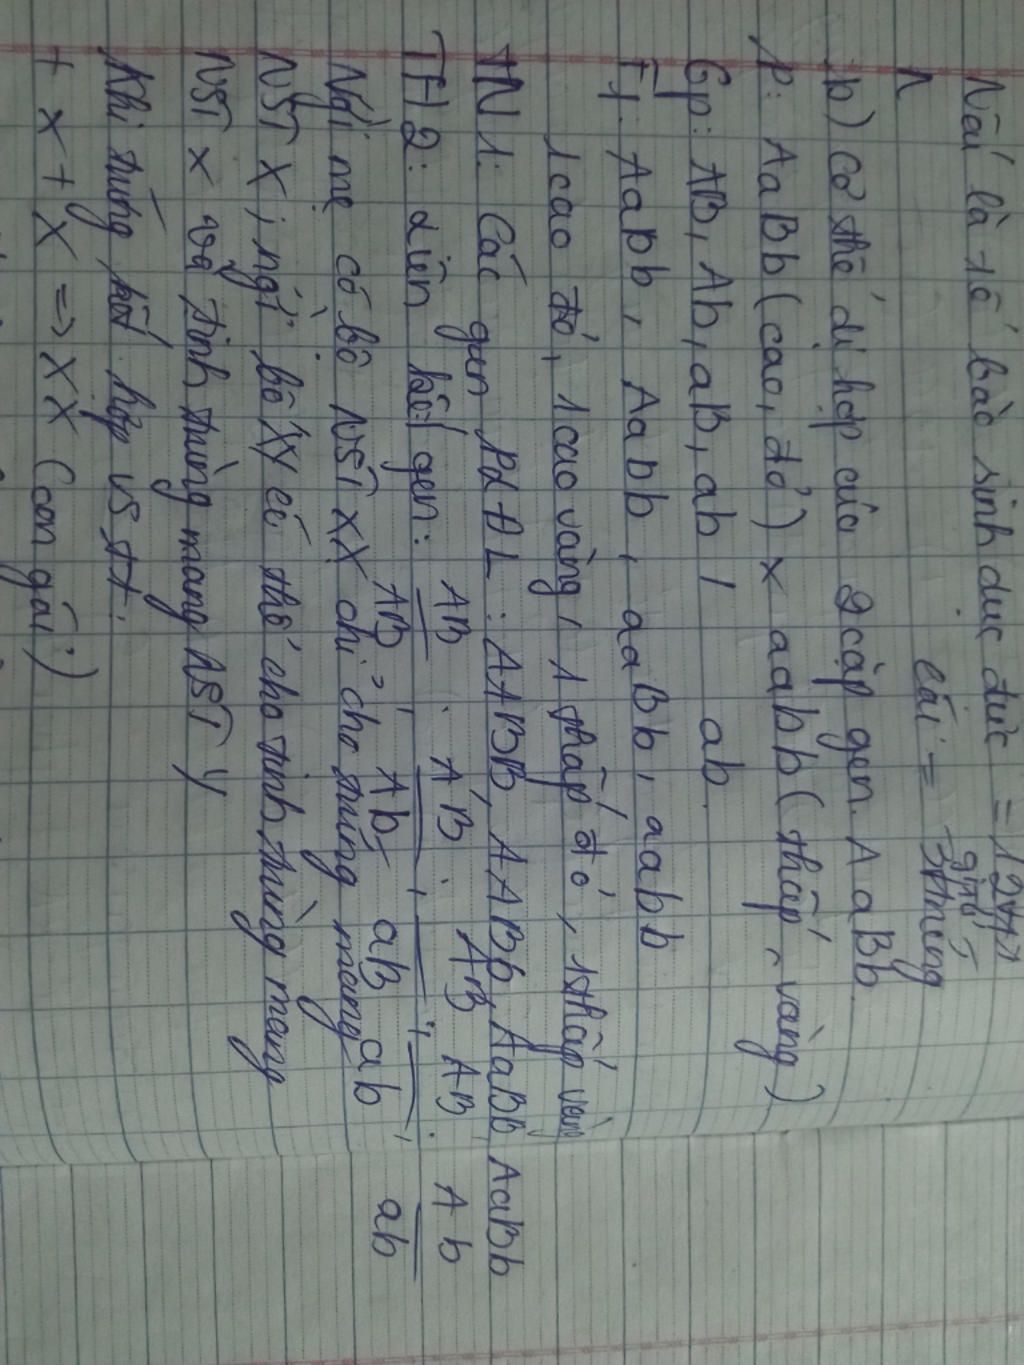 Nếu là tế bào sinh dục đực = 12
giờ
cái = 3 trứng
b) Cơ thể dị hợp của 2 cặp gen. AaBb
P: AaBb (cao, đỏ) x aabb (thấp, vàng)
Gp: AB, Ab, aB, ab / ab
F1: AaBb, Aabb, aaBb, aabb
1cao đỏ, 1cao vàng, 1 thấp đỏ, 1thấp vàng
TH 1: Các gen PLĐL: AABB, AABb, AaBb, AaBb
TH 2: Liên kết gen: AB/AB, AB/Ab, AB/aB, AB/ab, Ab/ab
Ngời mẹ có bộ NST XX chỉ cho trứng mang
NST X, ngời bố XY có thể cho tinh trùng mang
NST X và tinh trùng mang NST Y
Khi trứng kết hợp vs tt.
+ X + X => XX (con gái)